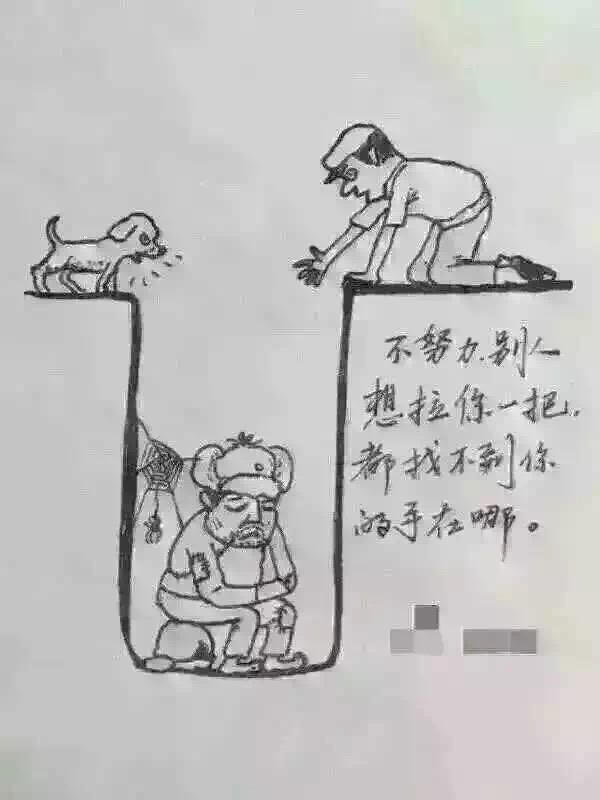 不努力,别人
想拉你一把,
都找不到你
的手在哪。